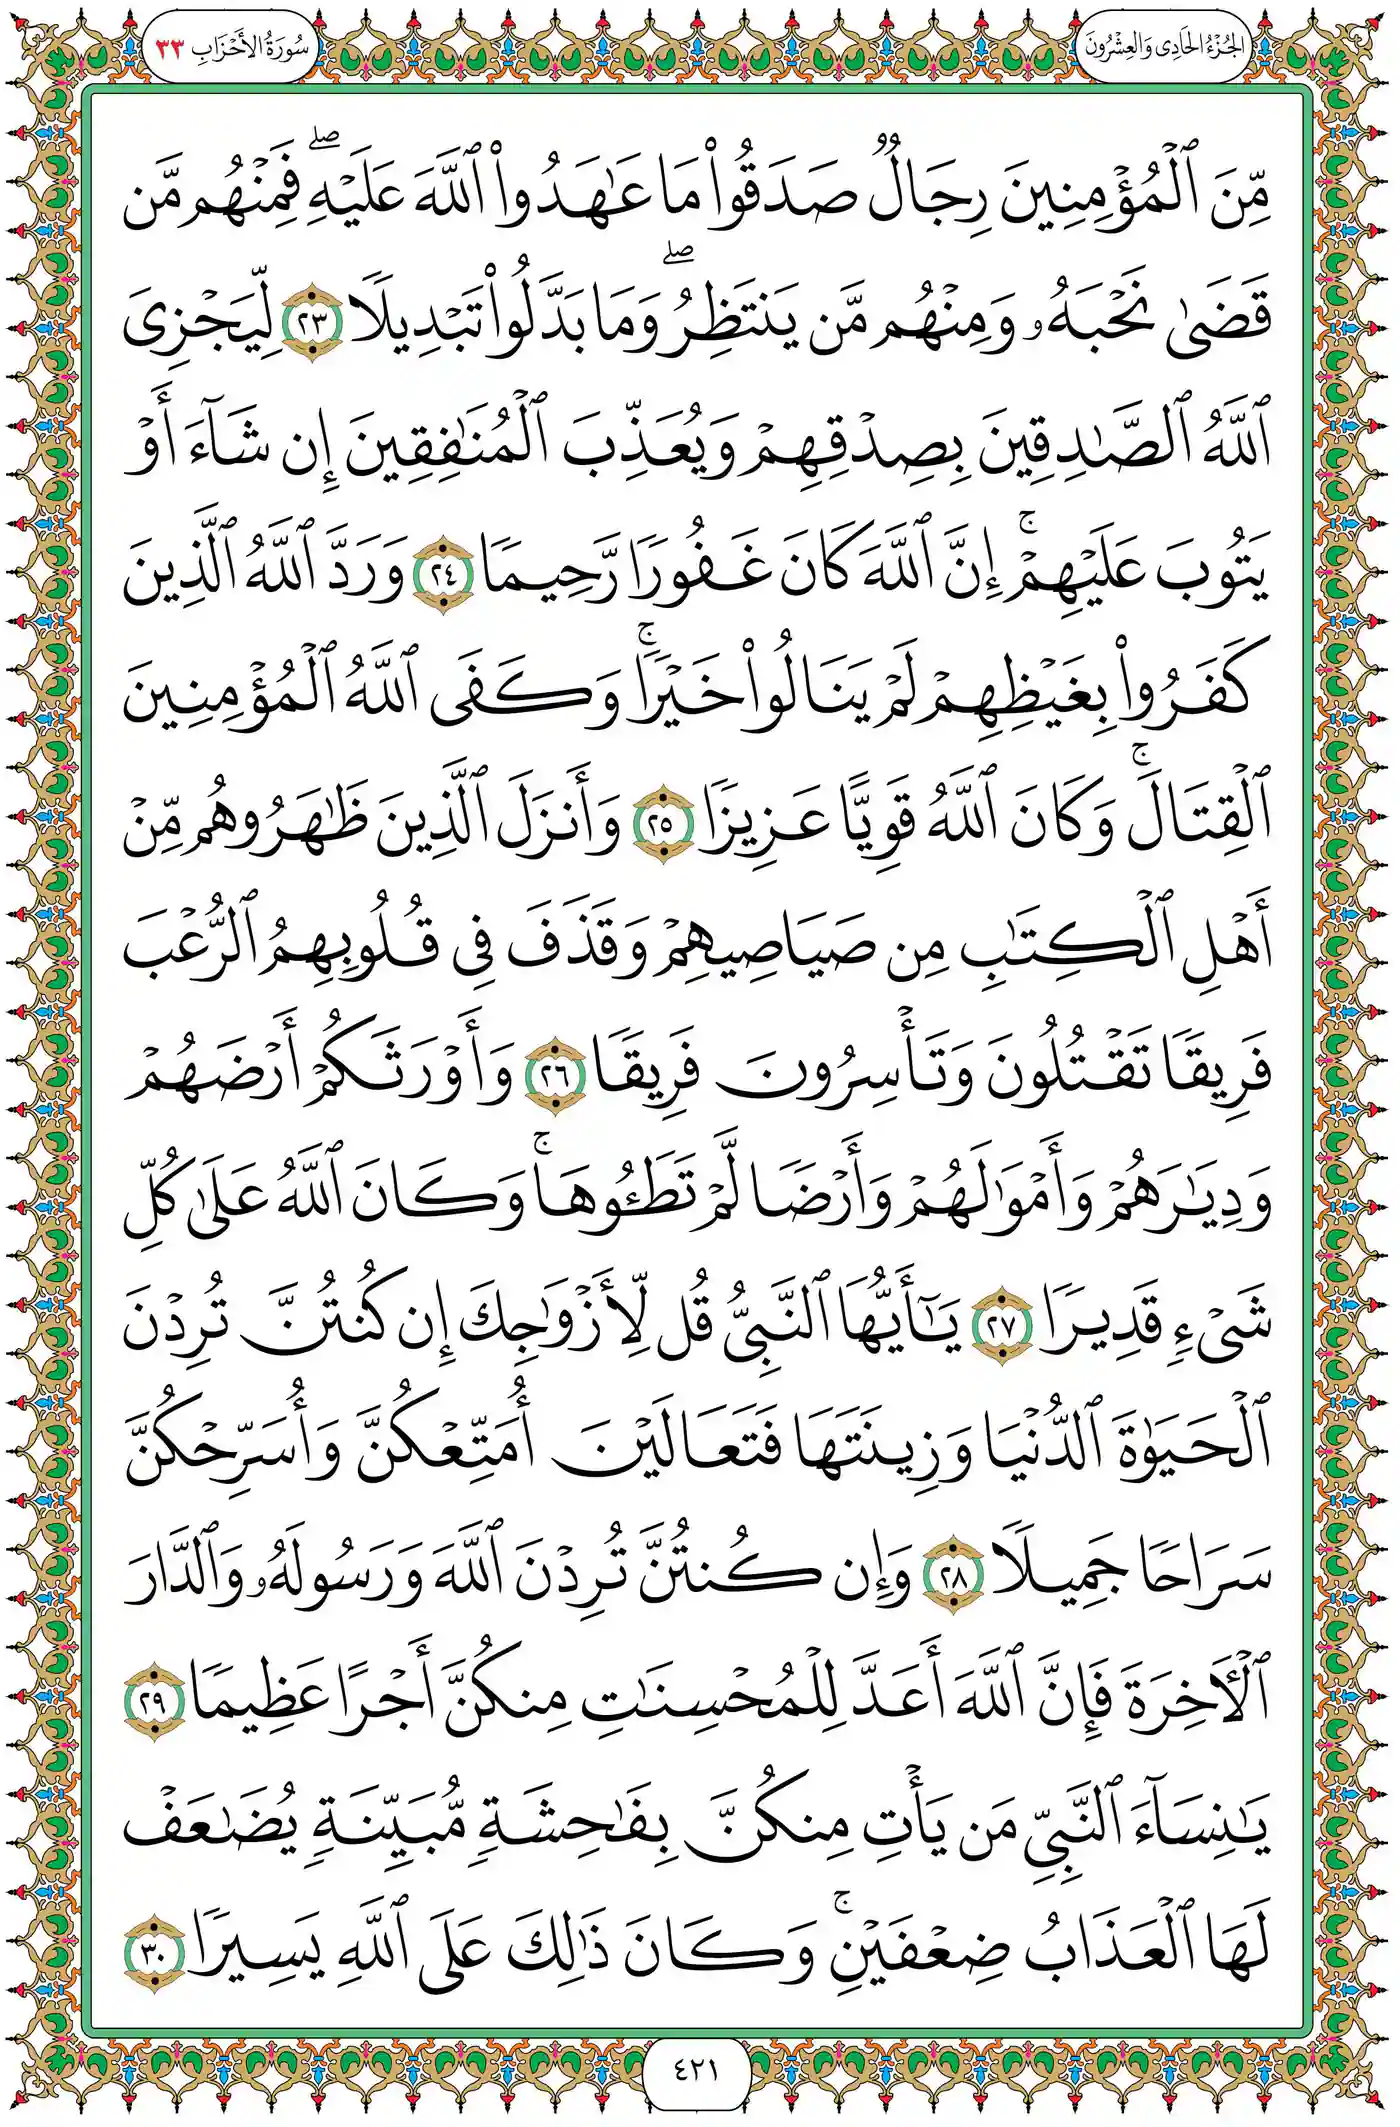 الجُزْءُ الحَادِى وَالعِشْرُونَ
سُورَةُ الأَحْزَابِ ٣٣
مِّنَ ٱلْمُؤْمِنِينَ رِجَالٌ صَدَقُوا۟ مَا عَٰهَدُوا۟ ٱللَّهَ عَلَيْهِ ۖ فَمِنْهُم مَّن
قَضَىٰ نَحْبَهُۥ وَمِنْهُم مَّن يَنتَظِرُ ۖ وَمَا بَدَّلُوا۟ تَبْدِيلًا ٢٣ لِّيَجْزِىَ
ٱللَّهُ ٱلصَّٰدِقِينَ بِصِدْقِهِمْ وَيُعَذِّبَ ٱلْمُنَٰفِقِينَ إِن شَآءَ أَوْ
يَتُوبَ عَلَيْهِمْ ۚ إِنَّ ٱللَّهَ كَانَ غَفُورًا رَّحِيمًا ٢٤ وَرَدَّ ٱللَّهُ ٱلَّذِينَ
كَفَرُوا۟ بِغَيْظِهِمْ لَمْ يَنَالُوا۟ خَيْرًا ۚ وَكَفَى ٱللَّهُ ٱلْمُؤْمِنِينَ
ٱلْقِتَالَ ۚ وَكَانَ ٱللَّهُ قَوِيًّا عَزِيزًا ٢٥ وَأَنزَلَ ٱلَّذِينَ ظَٰهَرُوهُم مِّنْ
أَهْلِ ٱلْكِتَٰبِ مِن صَيَاصِيهِمْ وَقَذَفَ فِى قُلُوبِهِمُ ٱلرُّعْبَ
فَرِيقًا تَقْتُلُونَ وَتَأْسِرُونَ فَرِيقًا ٢٦ وَأَوْرَثَكُمْ أَرْضَهُمْ
وَدِيَٰرَهُمْ وَأَمْوَٰلَهُمْ وَأَرْضًا لَّمْ تَطَـُٔوهَا ۚ وَكَانَ ٱللَّهُ عَلَىٰ كُلِّ
شَىْءٍ قَدِيرًا ٢٧ يَٰٓأَيُّهَا ٱلنَّبِىُّ قُل لِّأَزْوَٰجِكَ إِن كُنتُنَّ تُرِدْنَ
ٱلْحَيَوٰةَ ٱلدُّنْيَا وَزِينَتَهَا فَتَعَالَيْنَ أُمَتِّعْكُنَّ وَأُسَرِّحْكُنَّ
سَرَاحًا جَمِيلًا ٢٨ وَإِن كُنتُنَّ تُرِدْنَ ٱللَّهَ وَرَسُولَهُۥ وَٱلدَّارَ
ٱلْـَٔاخِرَةَ فَإِنَّ ٱللَّهَ أَعَدَّ لِلْمُحْسِنَٰتِ مِنكُنَّ أَجْرًا عَظِيمًا ٢٩
يَٰنِسَآءَ ٱلنَّبِىِّ مَن يَأْتِ مِنكُنَّ بِفَٰحِشَةٍ مُّبَيِّنَةٍ يُضَٰعَفْ
لَهَا ٱلْعَذَابُ ضِعْفَيْنِ ۚ وَكَانَ ذَٰلِكَ عَلَى ٱللَّهِ يَسِيرًا ٣٠
٤٢١